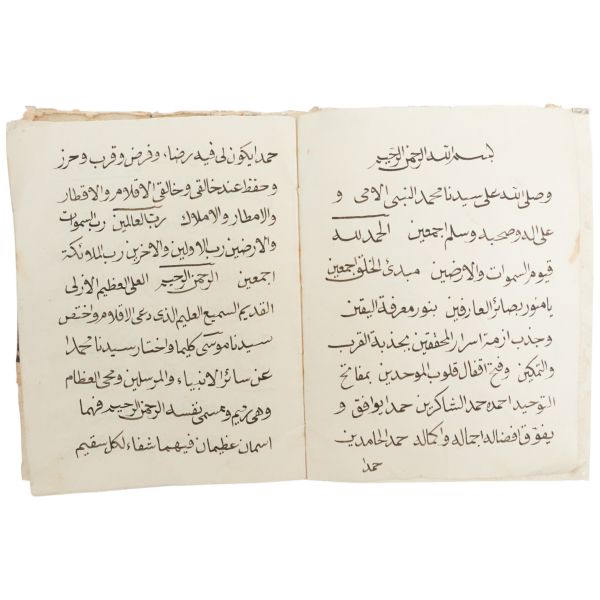 بسم الله الرحمن الرحيم
وصلى الله على سيدنا محمد النبي الامي و
على اله وصحبه وسلم اجمعين الحمد لله
قيوم السموات والارضين مبدئ الخلق اجمعين
يا منور بصائر العارفين بنور معرفة اليقين
وجذب ازمة اسرار المحققين بجذبة القرب
والتمكين وفتح اقفال قلوب الموحدين بمفاتح
التوحيد احمده حمد الشاكرين حمدا يوافق و
يفوق افضاله اجماله واكماله حمد الحامدين
حمد
حمدا يكون لي فيه رضاء وفرض وقرب وحرز
وحفظ عند خالقي وخالق الاقلام والاقطار
والامطار والاملاك رب العالمين رب السموات
والارضين رب الاولين والاخرين رب الملائكة
اجمعين الرحمن الرحيم العلي العظيم الازلي
القديم السميع العليم الذي دعى الاقلام واختص
سيدنا موسى كليما واختار سيدنا محمدا
عن سائر الانبياء والمرسلين ومحي العظام
وهي رميم ومسمى نفسه الرحمن الرحيم فهما
اسمان عظيمان فيهما شفاء لكل سقيم